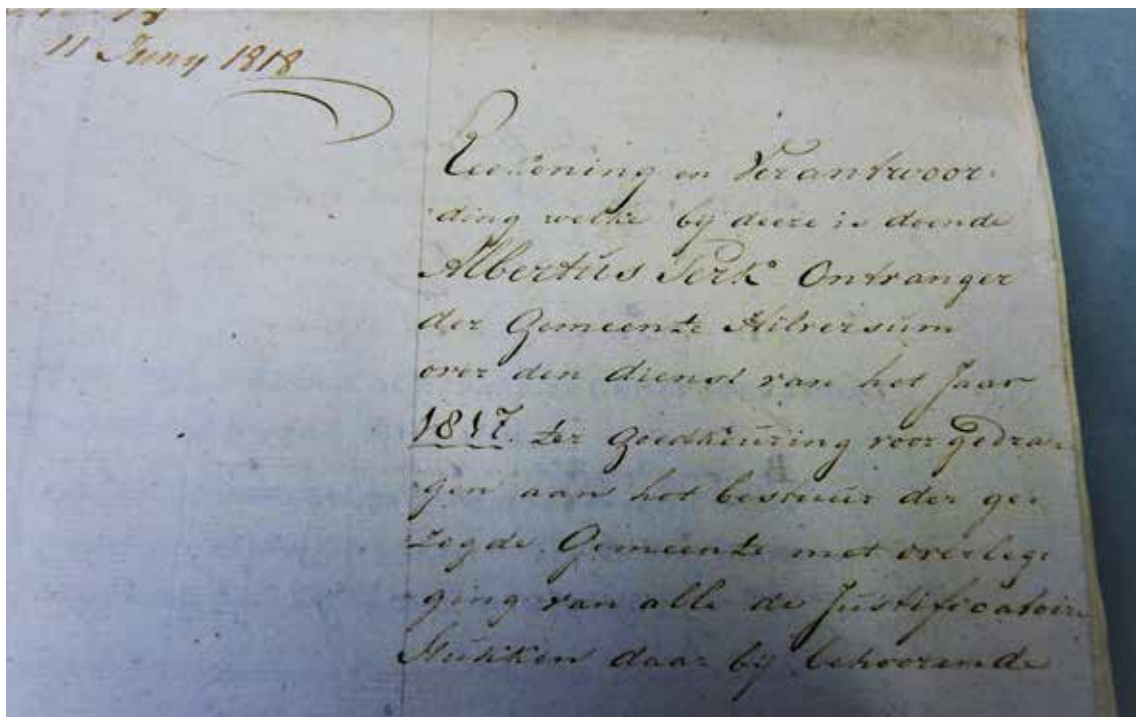 11 Juny 1818
Reekening en Verantwoor-
ding welke bij deeze is doende
Albertus Perk Ontvanger
der Gemeente Hilversum
over den dienst van het Jaar
1817. ter goedkeuring voor gedra-
gen aan het bestuur der ge-
zegde Gemeente met overleg-
ging van alle de Justificatoire
Stukken daar bij behoorende